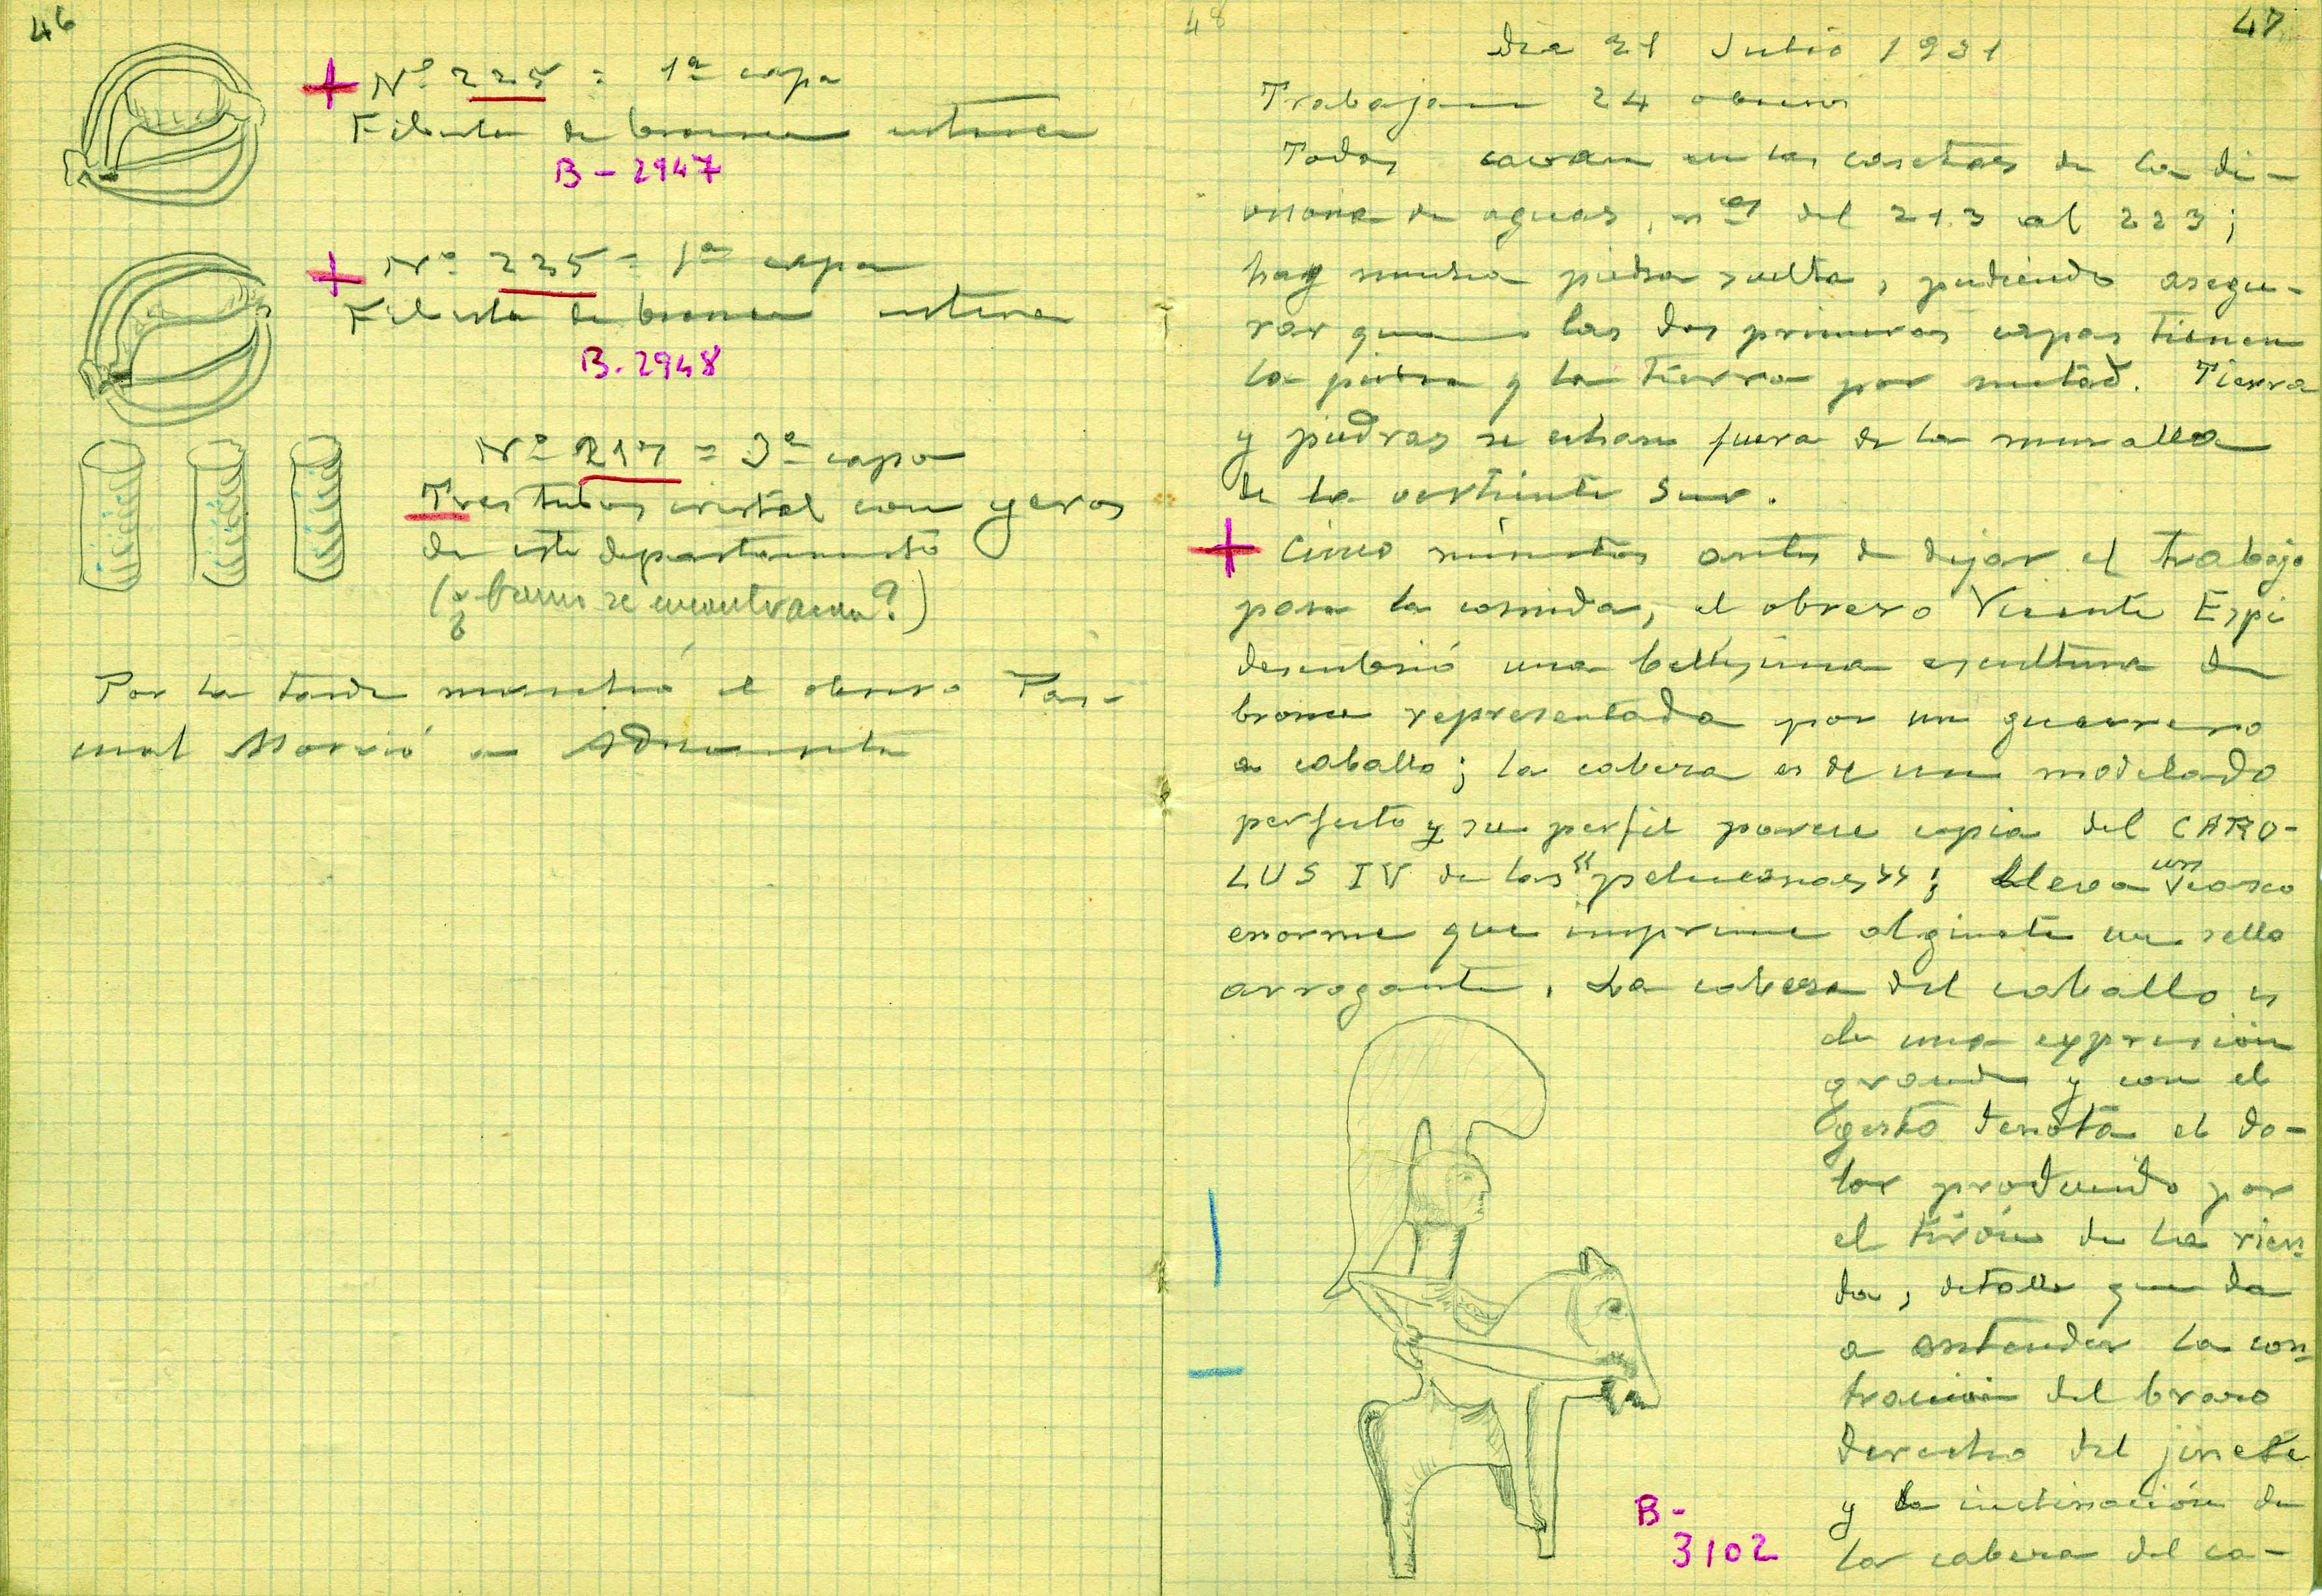 46
Nº 225 = 1ª capa
Fibula de bronce entera
B-2947
Nº 225 = 1ª capa
Fibula de bronce entera
B.2948
Nº 217 = 3ª capa
Tres tubos cristal con yeros
de este departamento
Por la tarde marchó el obrero Pas-
cual a
48
47
Dia 21 Julio 1931
Trabajan 24 obreros
Todos cavan en las casetas de la di-
visoria de aguas, nos del 213 al 223;
hay mucha piedra suelta, pudiendo asegu-
rar que las dos primeras capas tienen
la piedra y la tierra por mitad. Tierra
y piedras se echan fuera de la muralla
de la vertiente Sur.
Cinco minutos antes de dejar el trabajo
para la comida, el obrero Vicente Espí
descubrió una bellísima escultura de
bronce representada por un guerrero
a caballo; la cabeza es de un modelado
perfecto y su perfil parece copia del CARO-
LUS IV de las "peluconas"; lleva un casco
enorme que imprime al ginete un sello
arrogante. La cabeza del caballo es
de una expresión
grande y con el
gesto denota el do-
lor producido por
el tirón de la rien-
da, detalle que da
a entender la con-
tracción del brazo
derecho del jinete
y la inclinación de
la cabeza del ca-
B-
3102